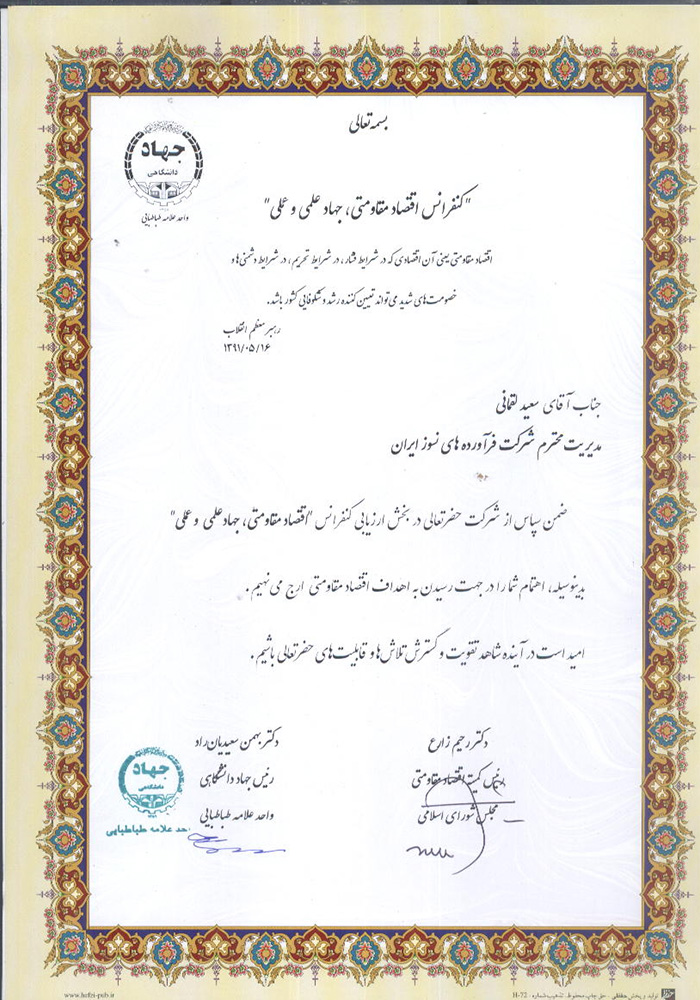 بسمه تعالی
جهاد
دانشگاهی
واحد علامه طباطبایی
"کنفرانس اقتصاد مقاومتی، جهاد علمی و عملی"
اقتصاد مقاومتی یعنی آن اقتصادی که در شرایط فشار، در شرایط تحریم، در شرایط دشمنی‌ها و
خصومت‌های شدید می‌تواند تعیین کننده رشد و شکوفایی کشور باشد.
رهبر معظم انقلاب
۱۳۹۱/۰۵/۱۶
جناب آقای سعید لقمانی
مدیریت محترم شرکت فرآورده های نسوز ایران
ضمن سپاس از شرکت حضرتعالی در بخش ارزیابی کنفرانس "اقتصاد مقاومتی، جهاد علمی و عملی"
بدینوسیله، اهتمام شما را در جهت رسیدن به اهداف اقتصاد مقاومتی ارج می نهیم.
امید است در آینده شاهد تقویت و گسترش تلاش‌ها و قابلیت‌های حضرتعالی باشیم.
دکتر رحیم زارع
رئیس کمیته اقتصاد مقاومتی
مجلس شورای اسلامی
دکتر بهمن سعیدیان راد
رئیس جهاد دانشگاهی
واحد علامه طباطبایی
جهاد
دانشگاهی
حد علامه طباطبایی
تولید و پخش حفظی - حق چاپ محفوظ. تذهیب شماره H-72
www.hefzi-pub.ir